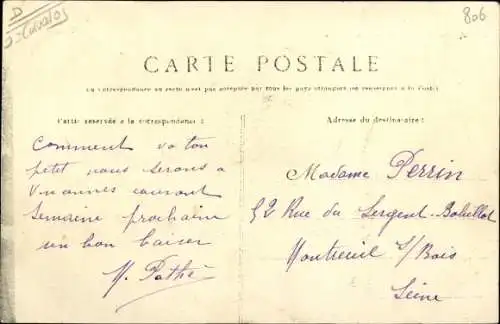 D
Cavalos
806
CARTE POSTALE
La correspondance au recto n'est pas acceptée par tous les pays étrangers (se renseigner à la Poste)
Partie réservée à la correspondance :
Adresse du destinataire :
Comment va ton
petit nous serons a
Vincennes courant
Semaine prochaine
un bon baiser
M. Pathé
Madame Perrin
52 Rue du Sergent-Bobillot
Montreuil s/Bois
Seine